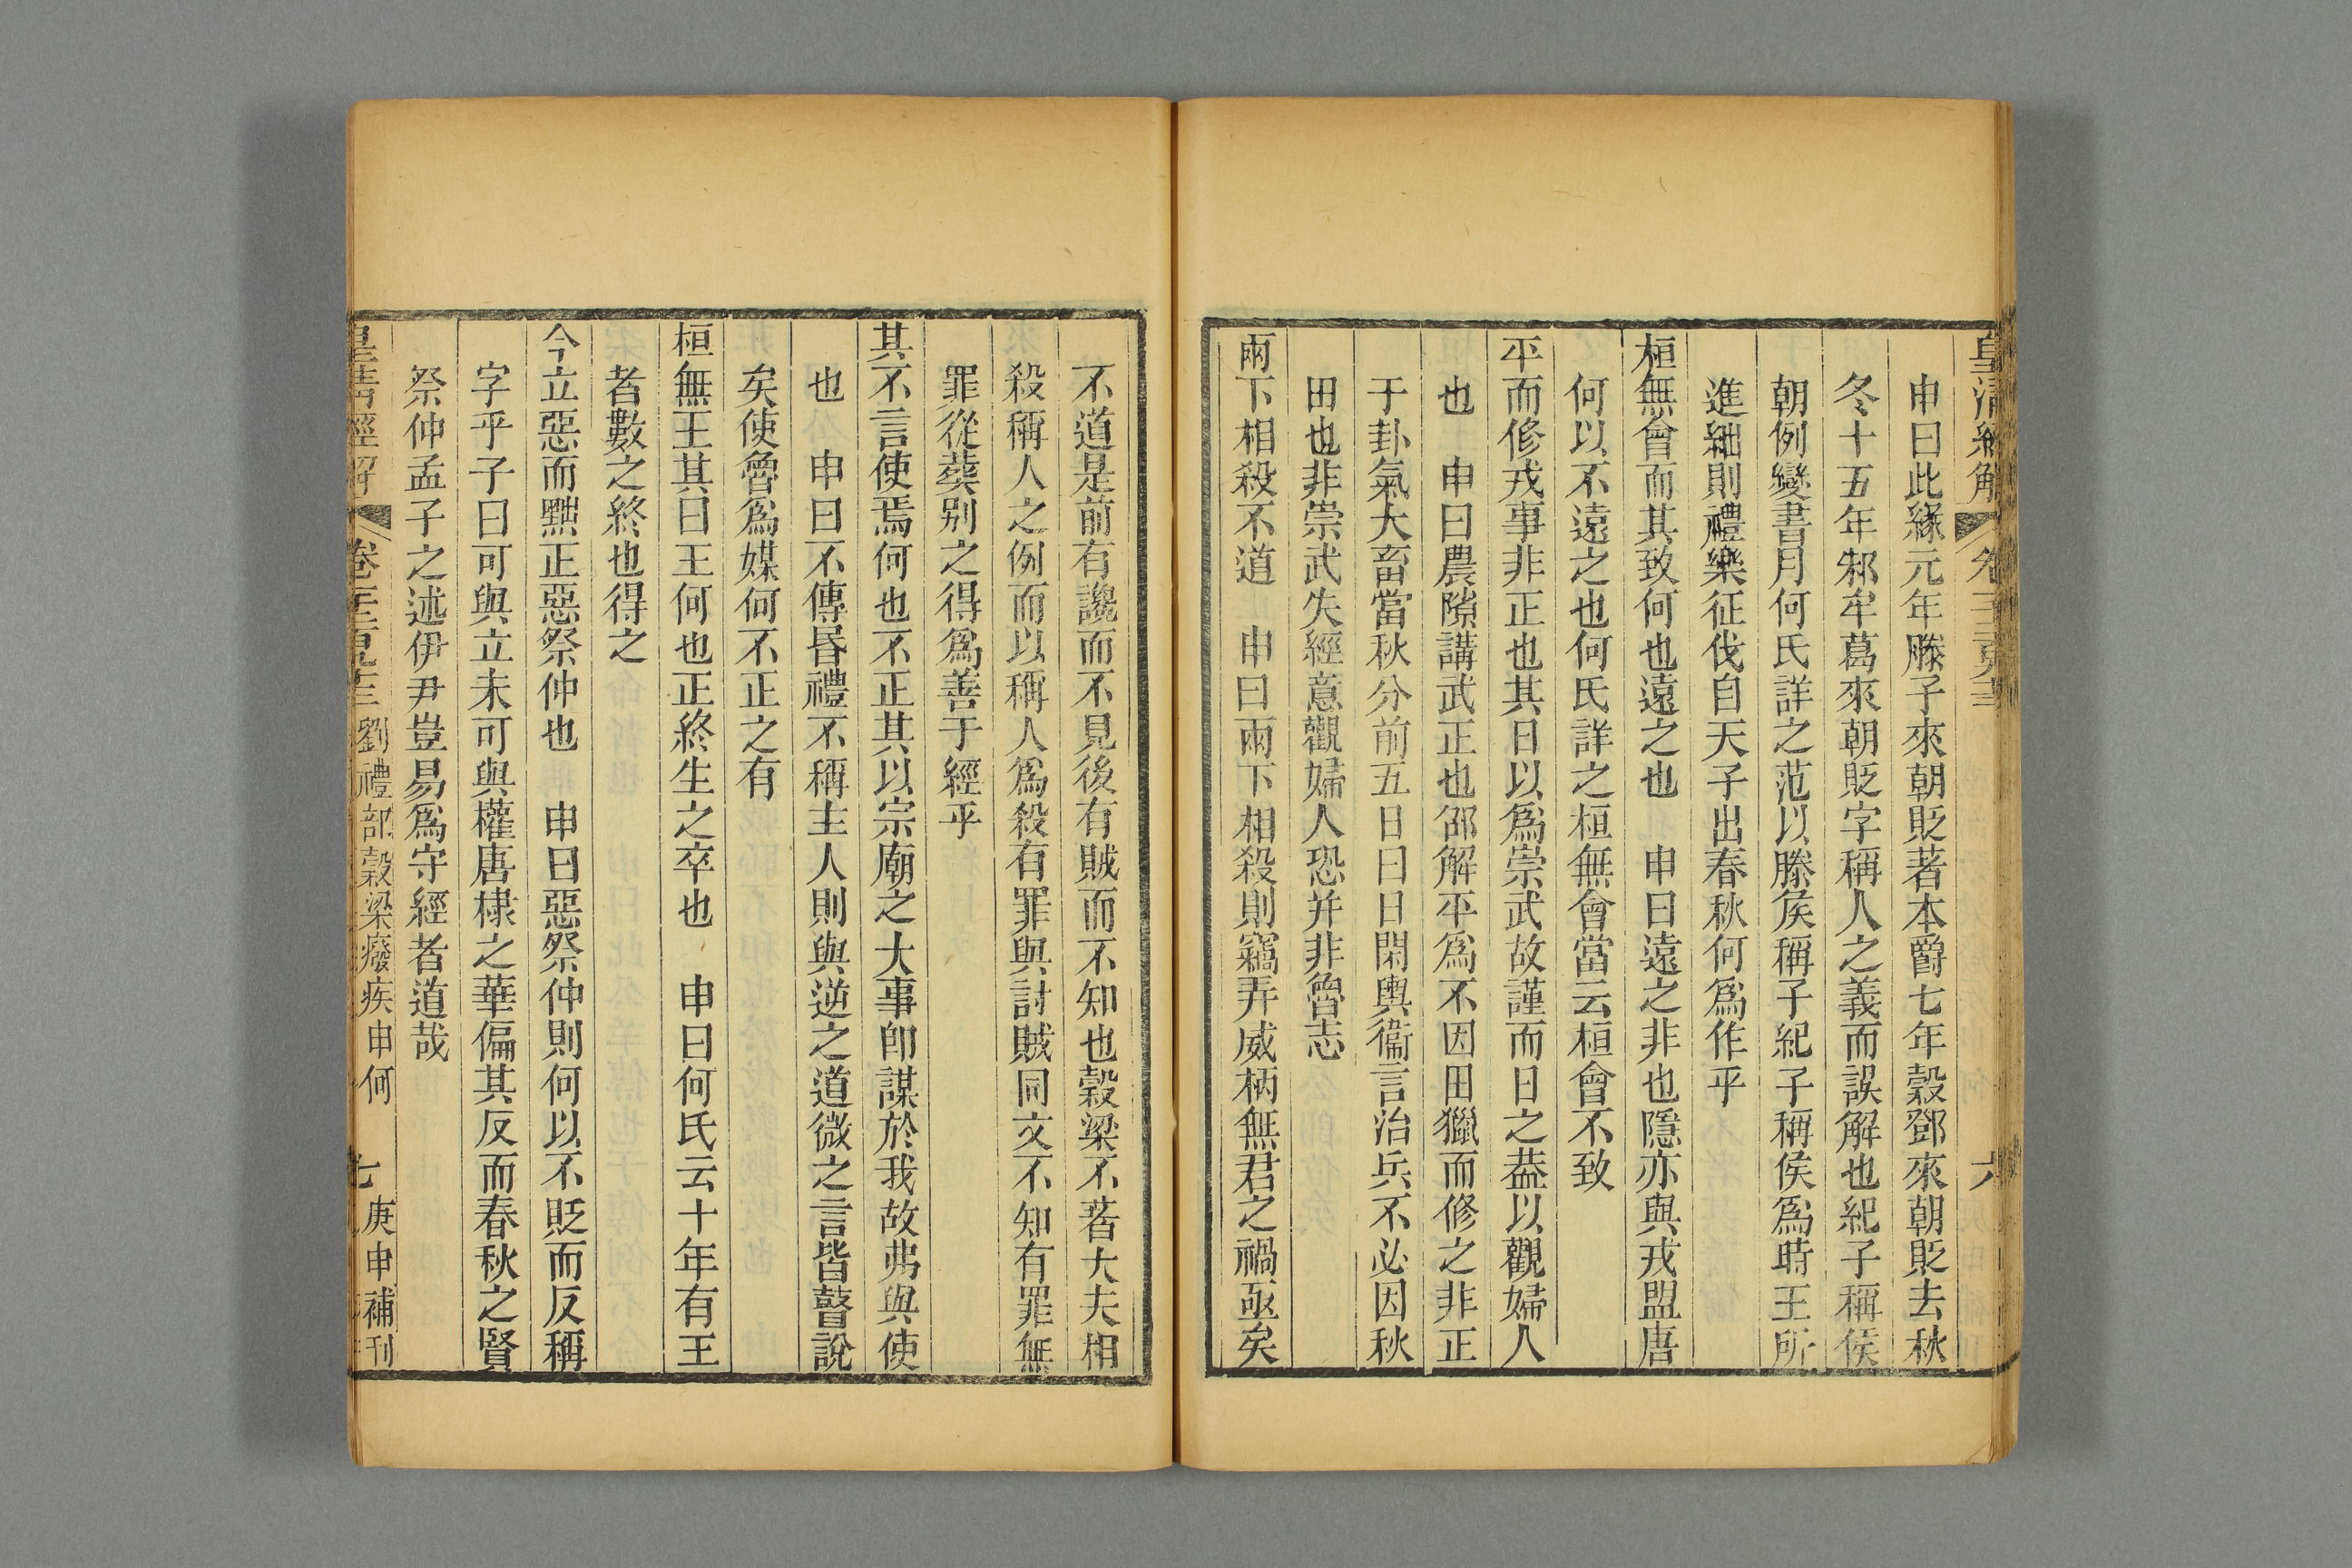 皇清經解
六
申曰此緣元年滕子來朝貶著本爵七年穀鄧來朝貶去秋
冬十五年邾牟葛來朝貶字稱人之義而誤解也紀子稱侯
朝例變書月何氏詳之范以滕侯稱子紀子稱侯爲時王所
進絀則禮樂征伐自天子出春秋何爲作乎
桓無會而其致何也遠之也　申曰遠之非也隱亦與戎盟唐
何以不遠之也何氏詳之桓無會當云桓會不致
平而修戎事非正也其日以爲崇武故謹而日之葢以觀婦人
也　申曰農隙講武正也郤解平爲不因田獵而修之非正
于卦氣大畜當秋分前五日曰日閑輿衞言治兵不必因秋
田也非崇武失經意觀婦人恐并非魯志
兩下相殺不道　申曰兩下相殺則竊弄威柄無君之禍亟矣
不道是前有讒而不見後有賊而不知也穀梁不著大夫相
殺稱人之例而以稱人爲殺有罪與討賊同文不知有罪無
罪從葬別之得爲善于經乎
其不言使焉何也不正其以宗廟之大事卽謀於我故弗與使
也　申曰不傳昏禮不稱主人則與逆之道微之言皆瞽說
矣使魯爲媒何不正之有
桓無王其曰王何也正終生之卒也　申曰何氏云十年有王
者數之終也得之
今立惡而黜正惡祭仲也　申曰惡祭仲則何以不貶而反稱
字乎子曰可與立未可與權唐棣之華偏其反而春秋之賢
祭仲孟子之述伊尹豈易爲守經者道哉
皇清經解
劉禮部穀梁廢疾申何
七
庚申補刊